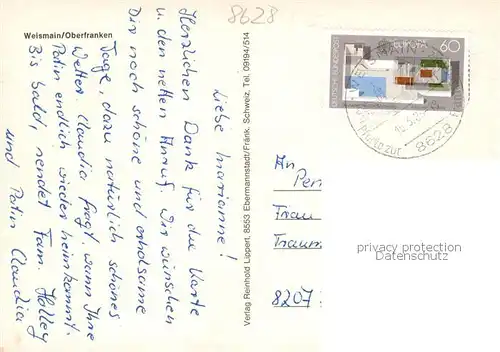 Weismain/Oberfranken
8628
Liebe Marianne!
Herzlichen Dank für die Karte
u. den netten Anruf. Wir wünschen
Dir noch schöne und erholsame
Tage, dazu natürlich schönes
Wetter. Claudia fragt, wann Ihre
Patin endlich wieder heimkommt.
Bis bald, sendet Fam. Holley
und Patin Claudia
Verlag Reinhold Lippert, 8553 Ebermannstadt/Fränk. Schweiz, Tel. 09194/514
DEUTSCHE BUNDESPOST
EUROPA
60
Pforte zur
8628
An
Frau
8207
privacy protection
Datenschutz